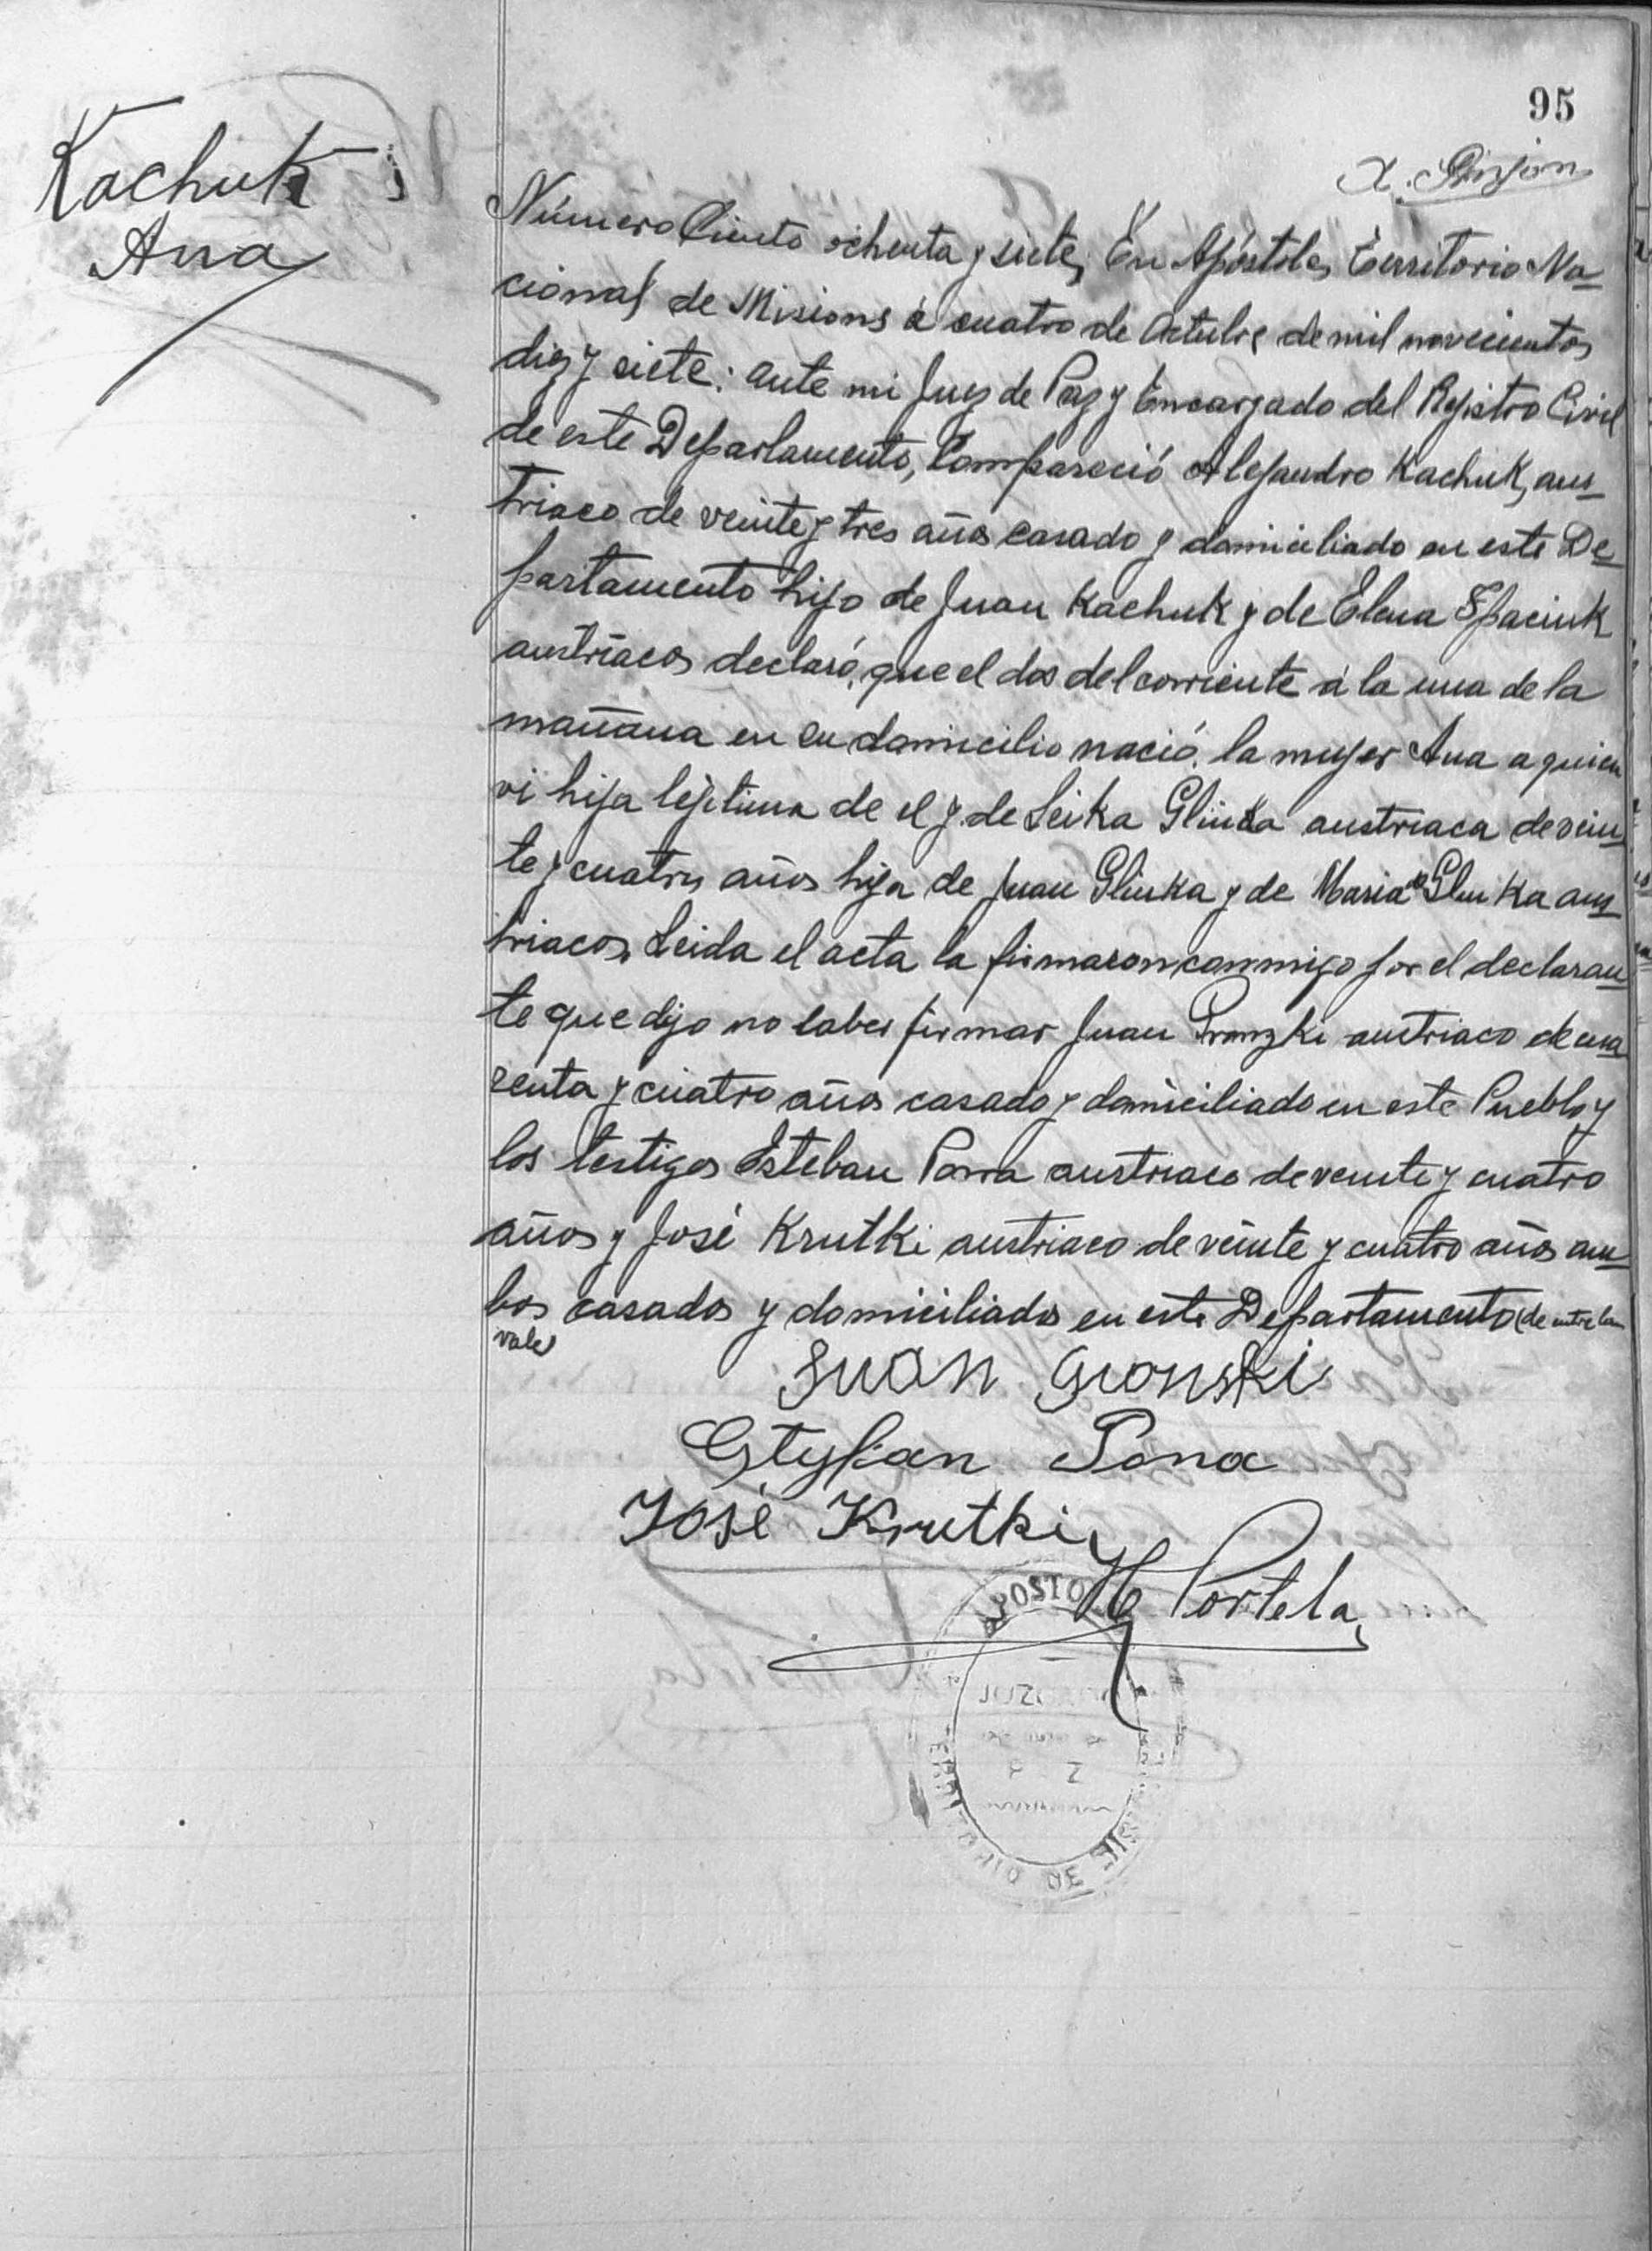 95
Kachuk
Ana
Número Ciento ochenta y siete, En Apóstoles, Territorio Na-
cional de Misions á cuatro de Octubre de mil novecientos
diez y siete: ante mi Juez de Paz y Encargado del Rejistro Civil
de este Departamento, Compareció Alejandro Kachuk, aus-
triaco de veinte y tres años casado y domiciliado en este De-
partamento hijo de Juan Kachuk y de Elena Spaciuk
austriacos declaró, que el dos del corriente á la una de la
mañana en su domicilio nació la mujer Ana a quien
vi hija lejitima de el y de Leika Glinka austriaca de vein-
te y cuatro años hija de Juan Glinka y de Maria de Glinka aus-
triacos. Leida el acta la firmaron conmigo por el declaran-
te que dijo no saber firmar Juan austriaco de cua-
renta y cuatro años casado y domiciliado en este Pueblo y
los testigos Esteban Pona austriaco de veinte y cuatro
años y José Krutki austriaco de veinte y cuatro años am-
bos casados y domiciliados en este Departamento (de entre lin
vale)
Juan Gronski
Styfan Pona
José Krutki
H Portela
APOSTO
JUZ
TERRITORIO DE MIS